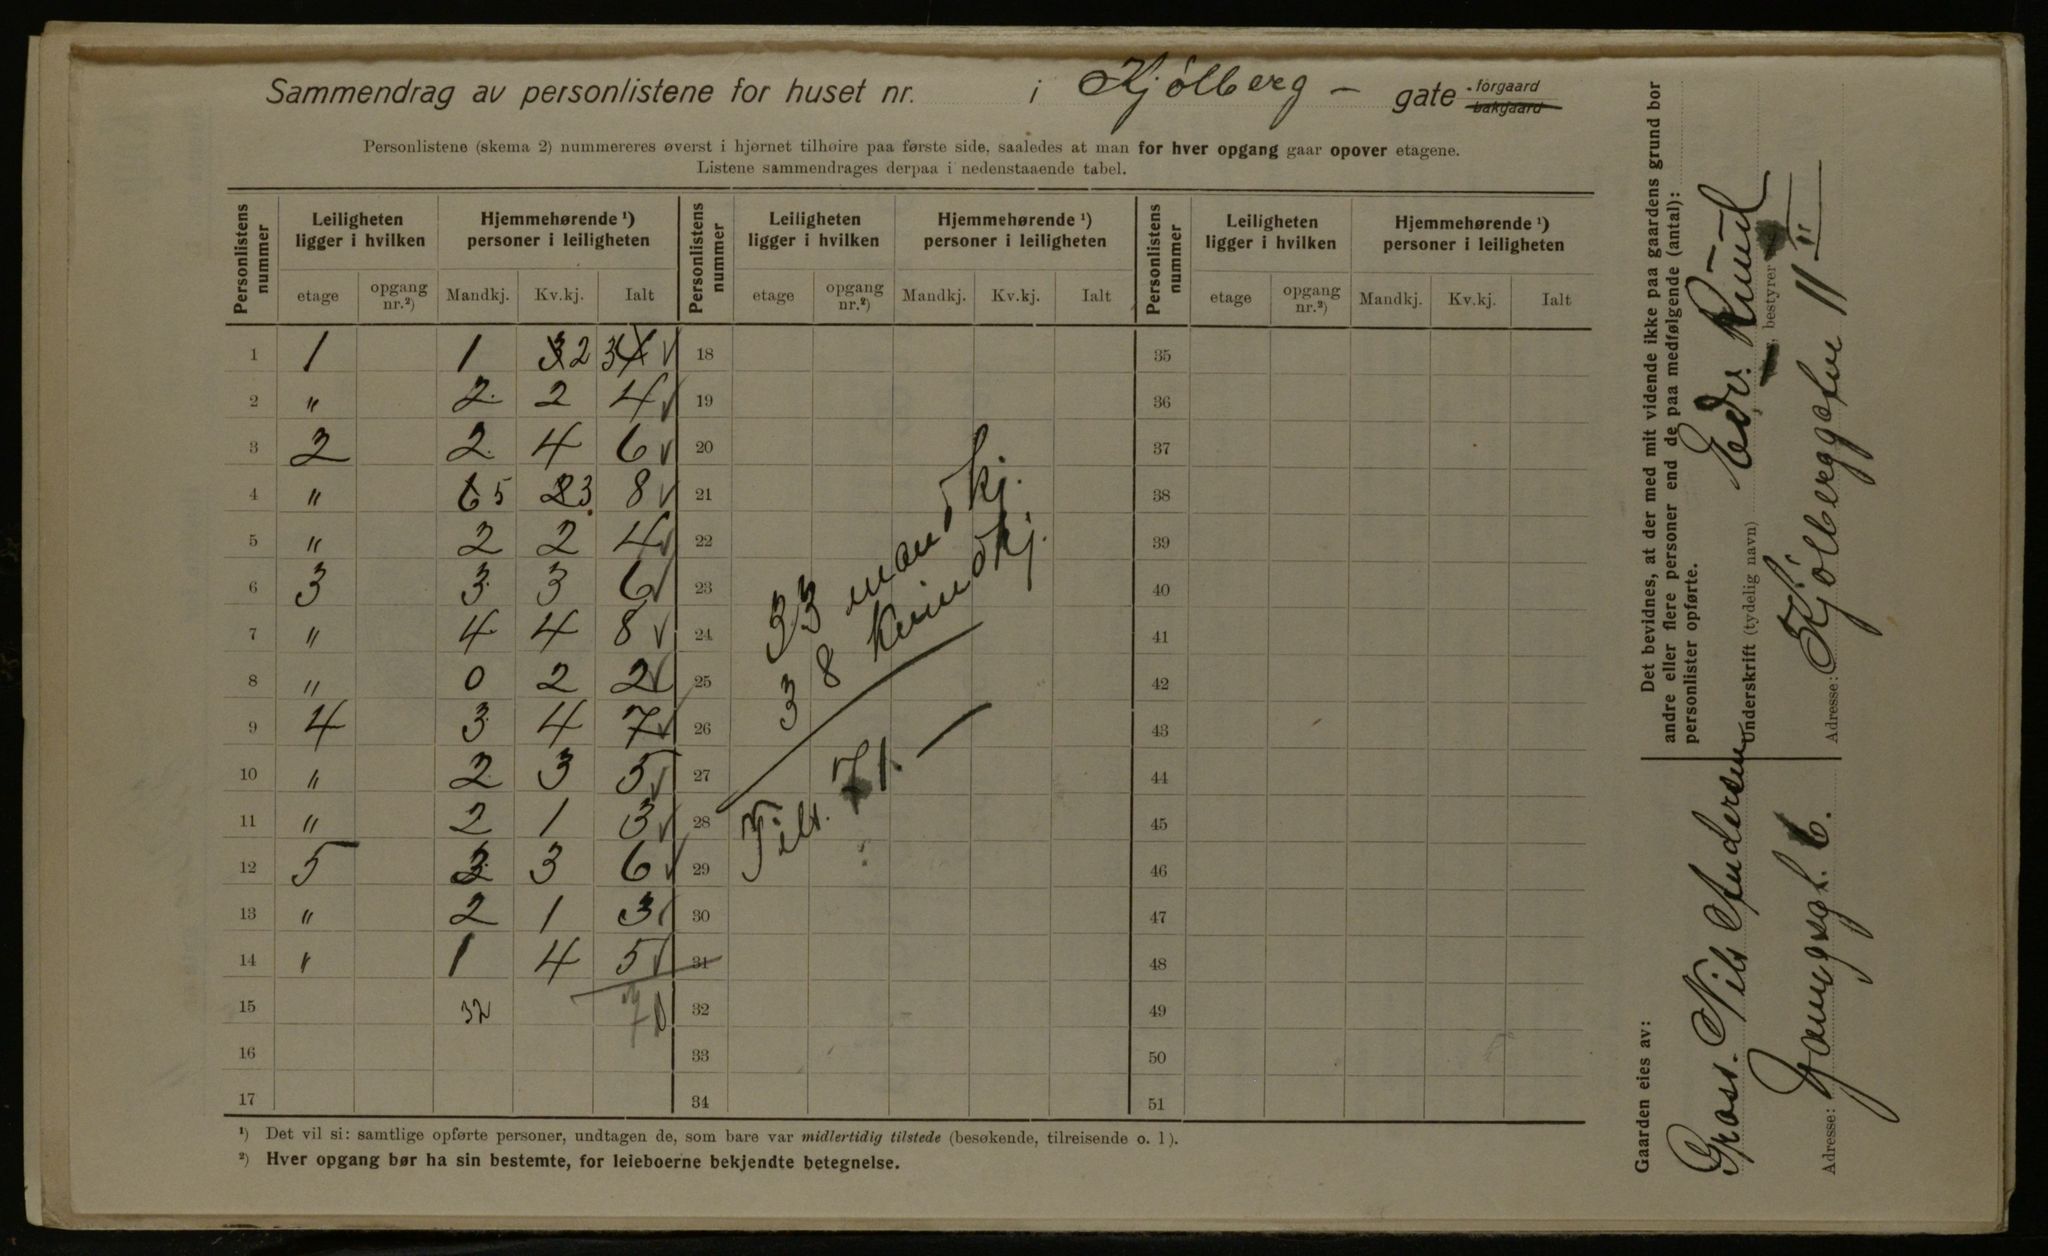 Sammendrag av personlistene for huset nr. i Kjølberg - gate - forgaard bakgaard
Personlistene (skema 2) nummereres øverst i hjørnet tilhøire paa første side, saaledes at man for hver opgang gaar opover etagene.
Listene sammendrages derpaa i nedenstaaende tabel.
Personlistens nummer Leiligheten ligger i hvilken Hjemmehørende ¹) personer i leiligheten Personlistens nummer Leiligheten ligger i hvilken Hjemmehørende ¹) personer i leiligheten Personlistens nummer Leiligheten ligger i hvilken Hjemmehørende ¹) personer i leiligheten
etage opgang nr.²) Mandkj. Kv.kj. Ialt etage opgang nr.²) Mandkj. Kv.kj. Ialt etage opgang nr.²) Mandkj. Kv.kj. Ialt
1 1 1 3 2 3 4 √ 18 35
2 " 2 2 4 √ 19 36
3 2 2 4 6 √ 20 37
4 " 6 5 2 3 8 √ 21 38
5 " 2 2 4 √ 22 39
6 3 3 3 6 √ 23 40
7 " 4 4 8 √ 24 41
8 " 0 2 2 √ 25 42
9 4 3 4 7 √ 26 43
10 " 2 3 5 √ 27 44
11 " 2 1 3 √ 28 45
12 5 3 3 6 √ 29 46
13 " 2 1 3 √ 30 47
14 " 1 4 5 √ 31 48
15 32 70 32 49
16 33 50
17 34 51
33 mandkj.
38 kvindkj.
Tils. 71.
¹) Det vil si: samtlige opførte personer, undtagen de, som bare var midlertidig tilstede (besøkende, tilreisende o. l).
²) Hver opgang bør ha sin bestemte, for leieboerne bekjendte betegnelse.
Det bevidnes, at der med mit vidende ikke paa gaardens grund bor
andre eller flere personer end de paa medfølgende (antal):
personlister opførte.
Edv. Ruud
Underskrift (tydelig navn) bestyrer
Adresse: Kjølberggaten 11 II
Gaarden eies av:
Gross. Nils Andersen
Adresse: